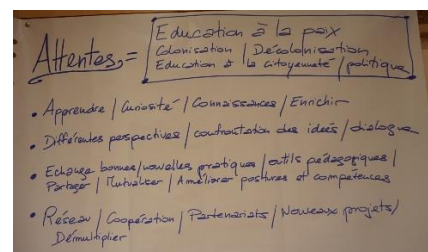 Attentes,=
Education à la paix
Colonisation / Décolonisation
Education à la citoyenneté / politique
• Apprendre / Curiosité / Connaissances / Enrichir
• Différentes perspectives / confrontation des idées / dialogue
• Echange bonnes/nouvelles pratiques / outils pédagogiques /
Partager / Mutualiser / Améliorer postures et compétences
• Réseau / Coopération / Partenariats / Nouveaux projets /
Démultiplier